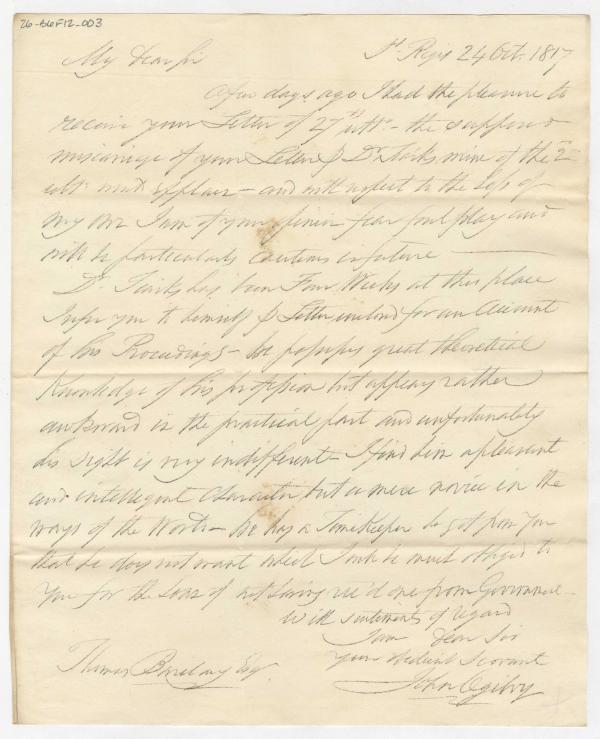 26-B6F12-003
St. Regis 24 Oct. 1817
My Dear Sir
A few days ago I had the pleasure to
receive your Letter of 27th ulto. - the suppose
miscarriage of your Letter p Dr. Tiarks mine of the 2
and with respect to the loss of
my own I am of your opinion fear foul play and
will be particularly cautious in future
Dr. Tiarks has been Four Weeks at this place
I refer you to himself p Letter enclosed for an Account
of his Proceedings - he possesses great theoretical
Knowledge of his profession but appears rather
awkward in the practical part and unfortunately
his sight is very indifferent - I find him a pleasant
and intelligent Character but a mere novice in the
ways of the World - he has a Time Keeper he got from You
that he does not want which I will be much obliged to
You for the loan of not having rec'd one from Government
With sentiments of regard
I am Dear Sir
Your obedient Servant
John Ogilvy
Thomas Barclay Esqr.